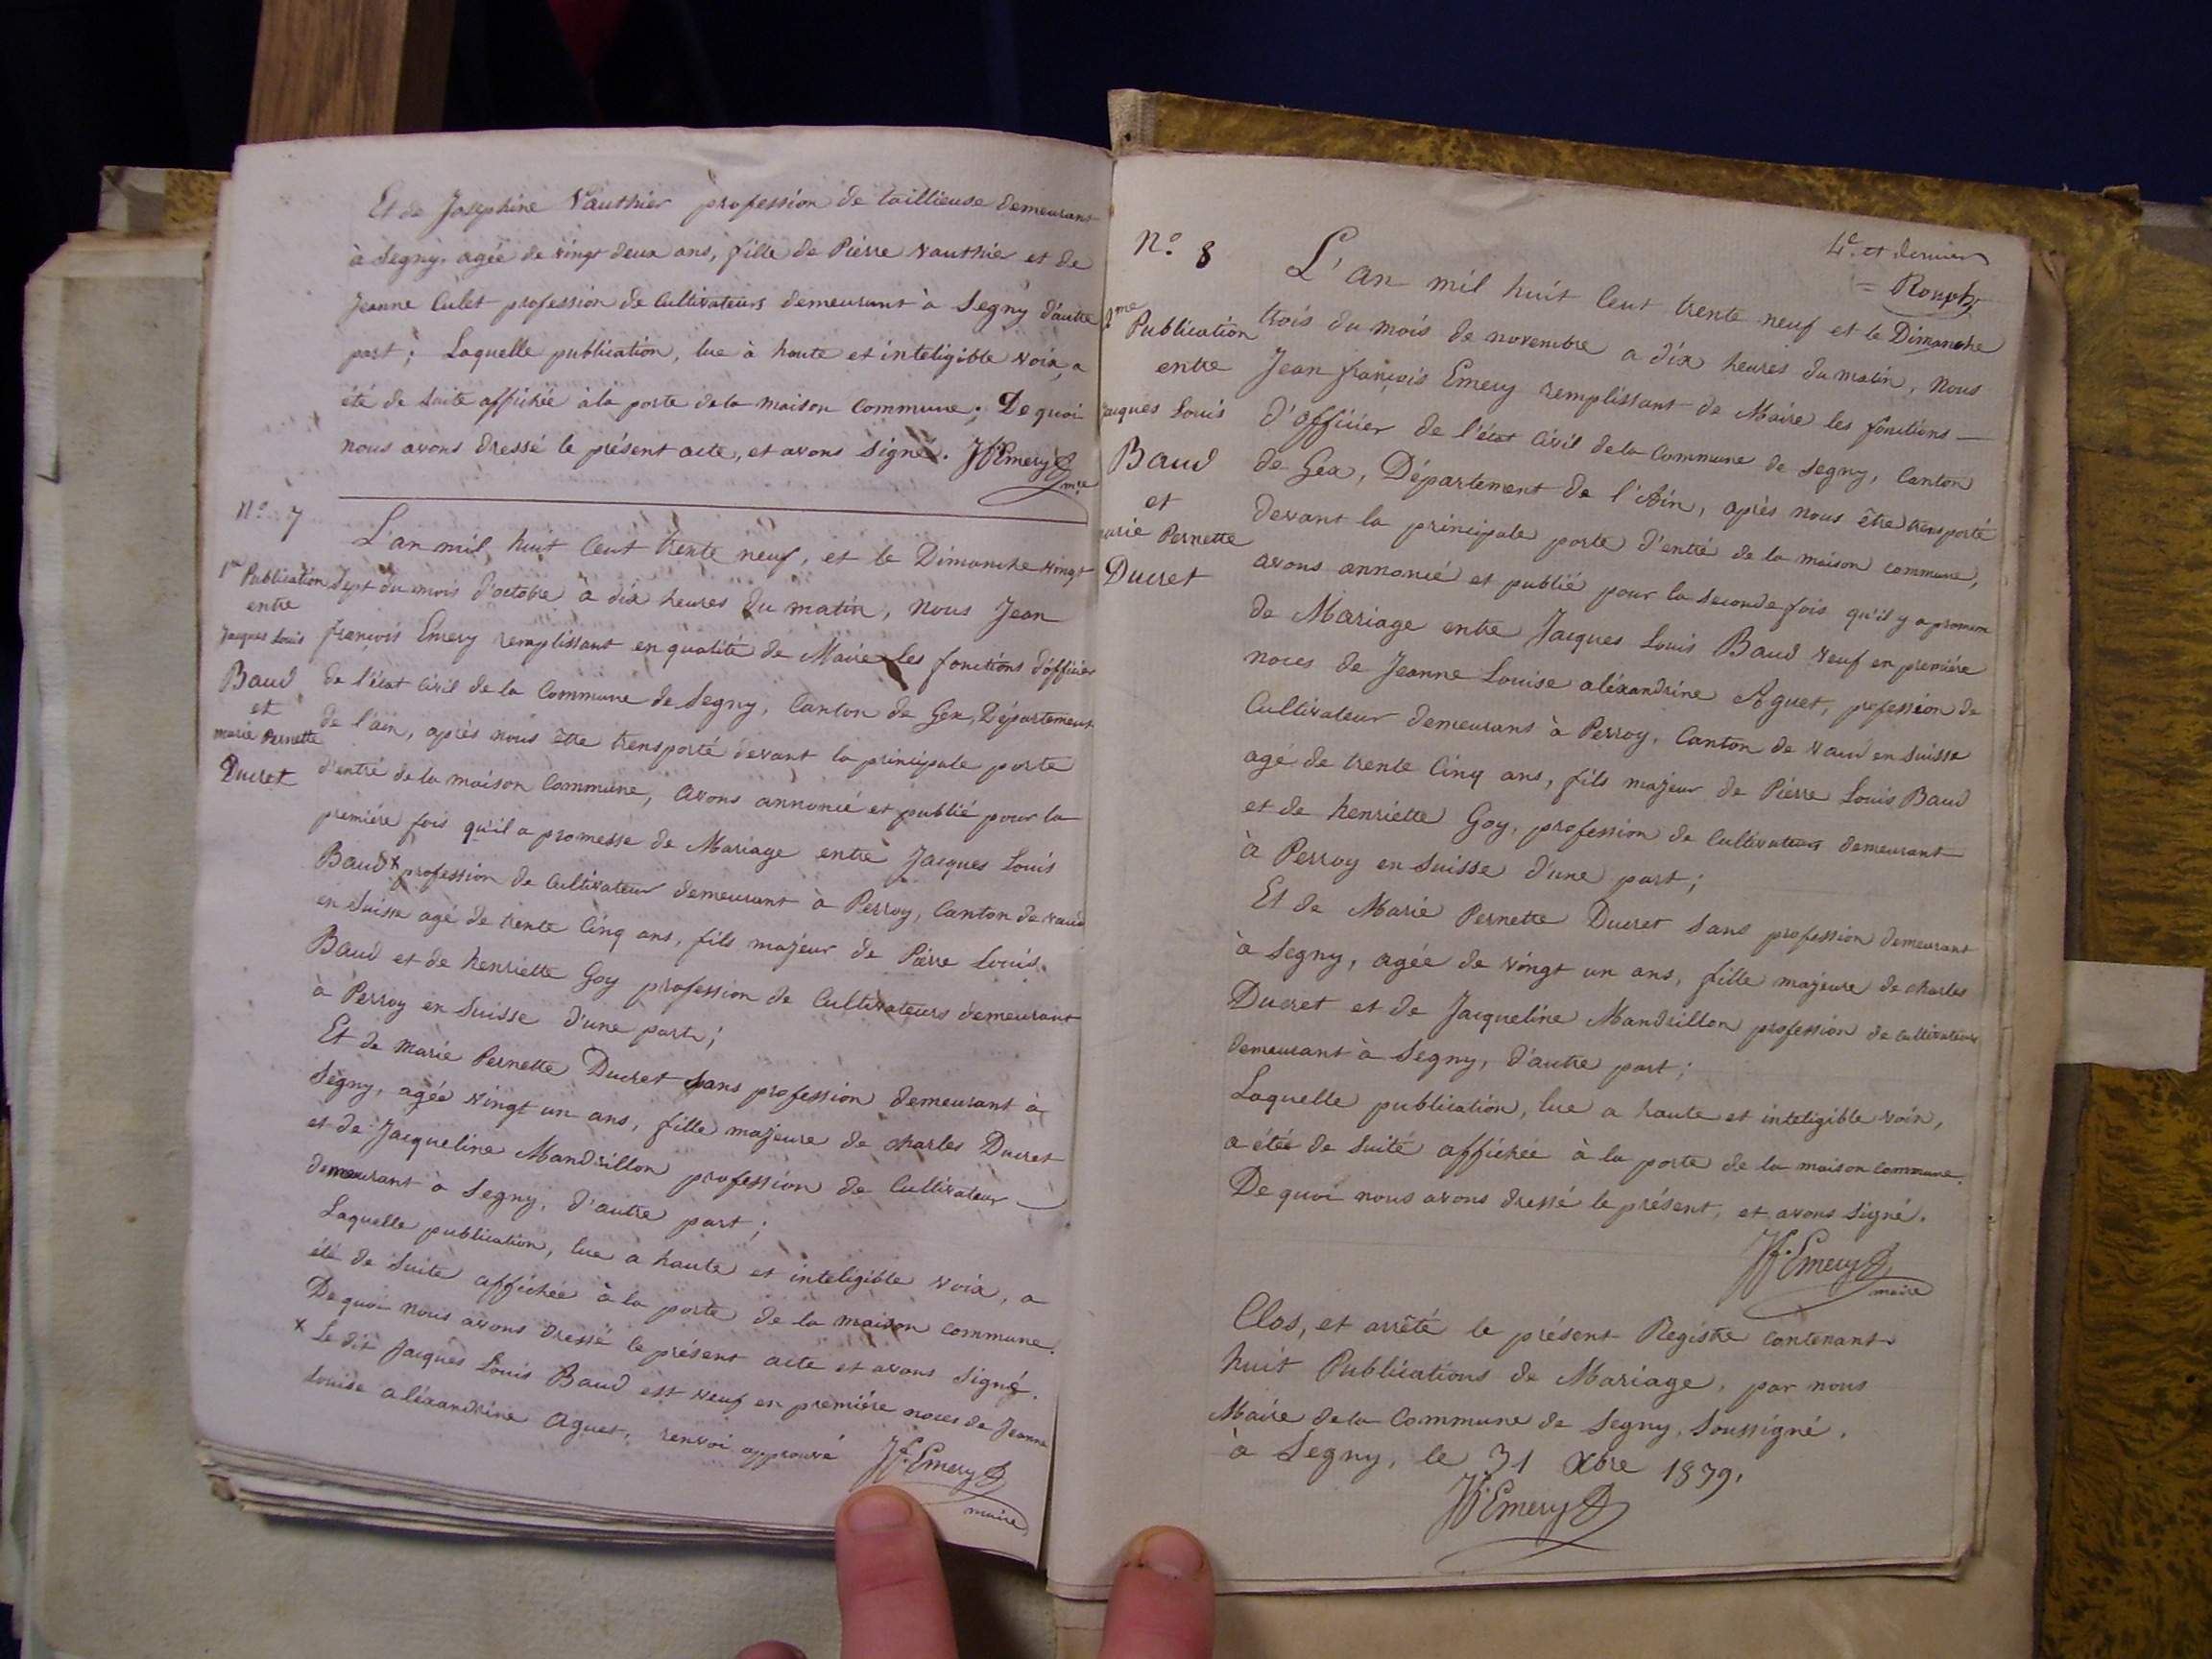 Et de Joséphine Vauthier profession de taillieuse demeurant
à Segny, agée de vingt deux ans, fille de Pierre Vauthier et de
Jeanne Culet profession de Cultivateurs demeurant à Segny d'autre
part; Laquelle publication, lue à haute et inteligible voix, a
été de suite affichée à la porte de la maison Commune; De quoi
nous avons dressé le présent acte, et avons signé. Jf. Emery
mre
N.o 7
1re Publication
entre
Jacques Louis
Baud
et
marie Pernette
Ducret
L'an mil huit Cent trente neuf, et le Dimanche vingt
Sept du mois d'octobre à dix heures du matin, nous Jean
françois Emery remplissant en qualité de Maire les fonctions d'officier
de l'état Civil de la Commune de Segny, Canton de Gex, Département
de l'ain, après nous être transporté devant la principale porte
d'entré de la maison Commune, avons annoncé et publié pour la
première fois qu'il a promesse de Mariage entre Jacques Louis
Baud x profession de Cultivateur demeurant à Perroy, Canton de vaud
en Suisse agé de trente Cinq ans, fils majeur de Pierre Louis
Baud et de henriette Goy profession de Cultivateurs demeurant
à Perroy en Suisse d'une part;
Et de marie Pernette Ducret sans profession demeurant à
Segny, agée vingt un ans, fille majeure de charles Ducret
et de Jacqueline Mandrillon profession de Cultivateur
demeurant à Segny, d'autre part;
Laquelle publication, lue a haute et inteligible voix, a
été de suite affichée à la porte de la maison commune.
De quoi nous avons dressé le présent acte et avons signé.
x Le dit Jacques Louis Baud est veuf en première noces de Jeanne
Louise aléxandrine Aguet, renvoi approuvé Jf. Emery
maire
4e et dernier
= Rouph
N.o 8
2me
Publication
entre
Jacques Louis
Baud
et
marie Pernette
Ducret
L'an mil huit Cent trente neuf et le Dimanche
trois du mois de novembre a dix heures du matin, Nous
Jean françois Emery remplissant de Maire les fonctions
d'officier de l'état Civil de la Commune de Segny, Canton
de Gex, Département de l'Ain, après nous être transporté
devant la principale porte d'entré de la maison commune,
avons annoncé et publié pour la seconde fois qu'il y a promesse
de Mariage entre Jacques Louis Baud veuf en première
noces de Jeanne Louise aléxandrine Aguet, profession de
Cultivateur demeurans à Perroy, Canton de vaud en Suisse
agé de trente Cinq ans, fils majeur de Pierre Louis Baud
et de henriette Goy, profession de Cultivateurs demeurant
à Perroy en Suisse d'une part;
Et de Marie Pernette Ducret sans profession demeurant
à Segny, agée de vingt un ans, fille majeure de charles
Ducret et de Jacqueline Mandrillon profession de cultivateurs
demeurant à Segny, d'autre part;
Laquelle publication, lue a haute et inteligible voix,
a étée de suite affichée à la porte de la maison commune.
De quoi nous avons dressé le présent, et avons signé.
Jf. Emery
maire
Clos, et arrêté le présent Registre contenant
huit Publications de Mariage, par nous
Maire de la Commune de Segny, soussigné.
à Segny, le 31 Xbre 1839.
Jf. Emery